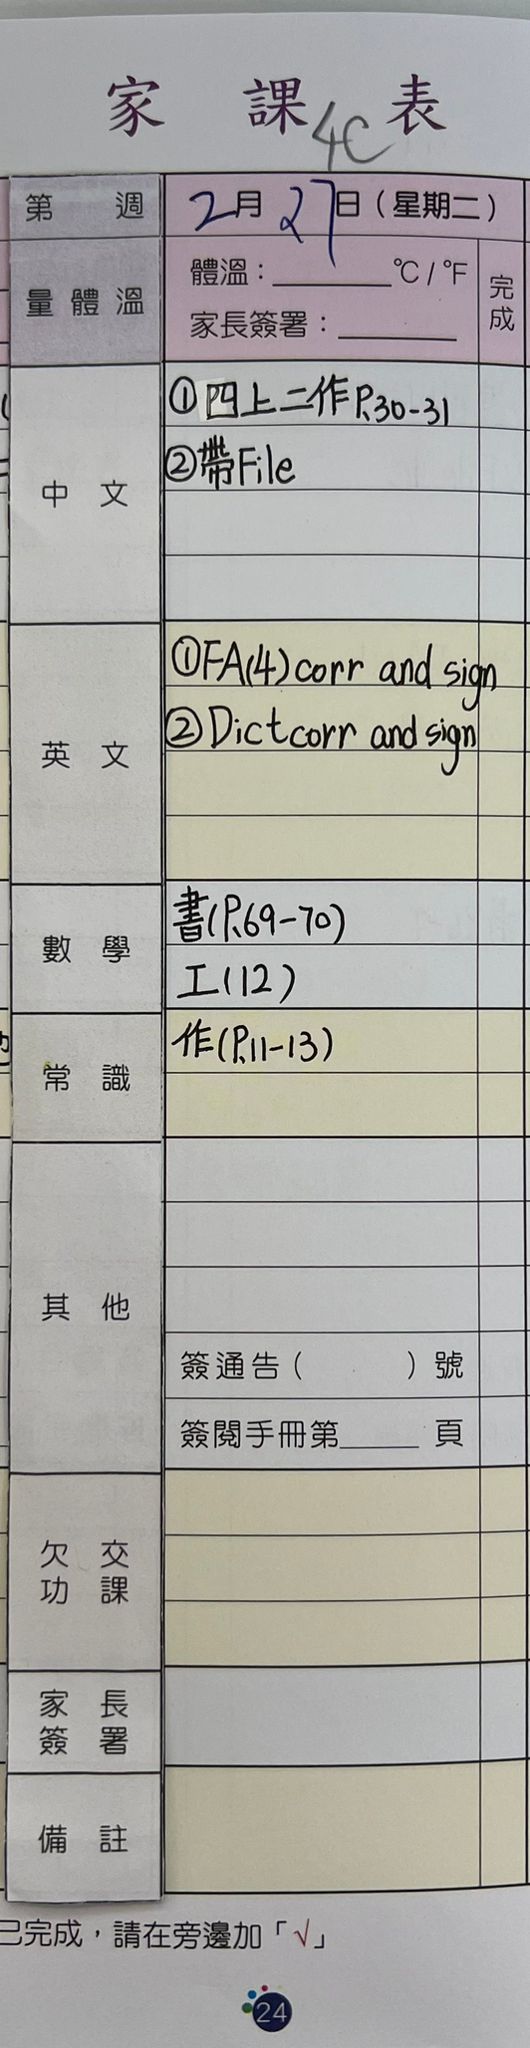 家課表
4C
第 週 2月27日(星期二)
量體溫 體溫:______°C/°F 完成
家長簽署:______
中文 ①四上二作P.30-31
②帶File
英文 ①FA(4)corr and sign
②Dictcorr and sign
數學 書(P.69-70)
工(12)
常識 作(P.11-13)
其他
簽通告( )號
簽閱手冊第_____頁
欠交功課
家長簽署
備註
已完成,請在旁邊加「√」
24